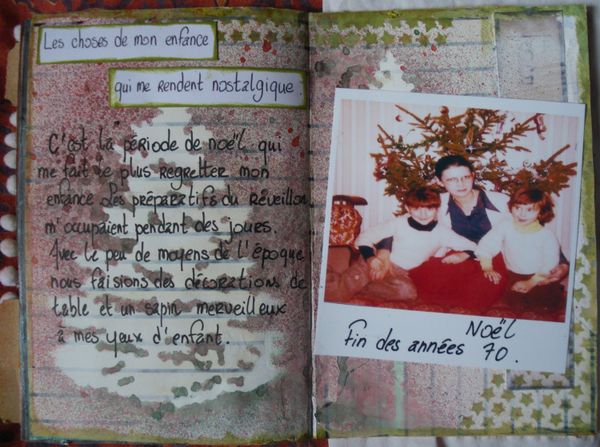 Les choses de mon enfance
qui me rendent nostalgique.
C'est la période de noël qui
me fait le plus regretter mon
enfance. Les préparatifs du Réveillon
m'occupaient pendant des jours.
Avec le peu de moyens de l'époque
nous faisions des décorations de
table et un sapin merveilleux
à mes yeux d'enfant.
Noël
fin des années 70.